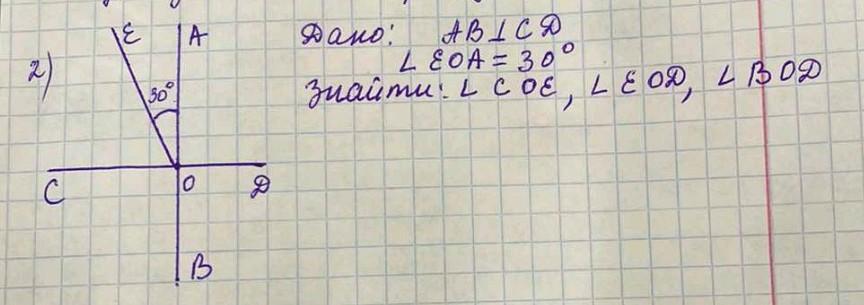 2)
E A
30°
C O D
B
Дано: AB⊥CD
∠EOA = 30°
Знайти: ∠COE, ∠EOD, ∠BOD